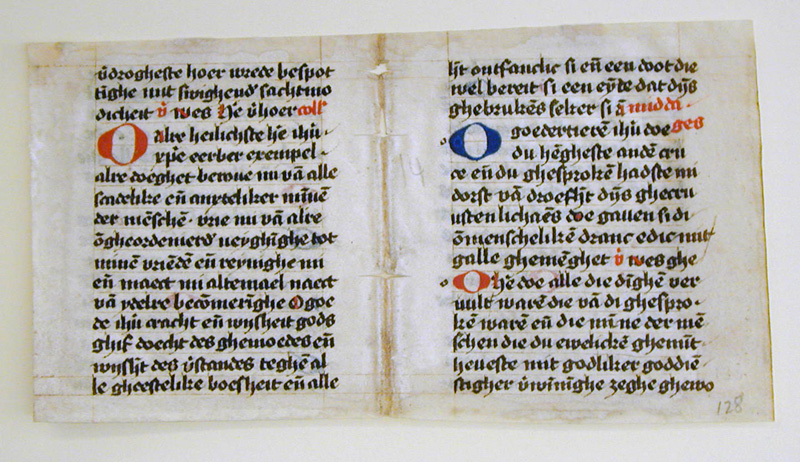 v̄drogheste hoer wrede bespot
tighe mit swighend' sachtmo
dicheit v̄ wes he v̄hoer coll'
O alre heilichste he ihū
xpe eerber exempel
alre doeghet beroue mi vā alle
scadelike eñ anxteliker mīnēn
der mēschē · vrie mi vā alre
ōgheordenierd' neyghīghe tot
minēn vriēdē eñ reynighe mi
eñ maect mi altemael naect
vā ydelre becōmerīghe O goe
de ihū cracht eñ wysheit gods
ghif doecht des ghemoedes eñ
wyshȳt des v̄standes teghē al
le gheestelike boesheit eñ alle
hȳt ontfanclic si eñ een doot die
wel bereit si een eyde dat dijs
ghebrukēs seker si ā midda
O goedertierē ihū doe ges
du hēgheste andē cru
ce eñ du ghesprokē hadste mi
dorst vā droefhȳt dijs ghecru
usten lichaēs doe gauen si di
ōmenschelikē dranc edic mit
galle ghemēghet v̄ wes ghe
O he doe alle die dīghēn ver
uult warē die vā di ghespro
kē warē eñ die mīne der mē
schen die du ewelickē ghemīt
heueste mit godliker goddiē
stigher v̄winīghe zeghe ghewo
14
128